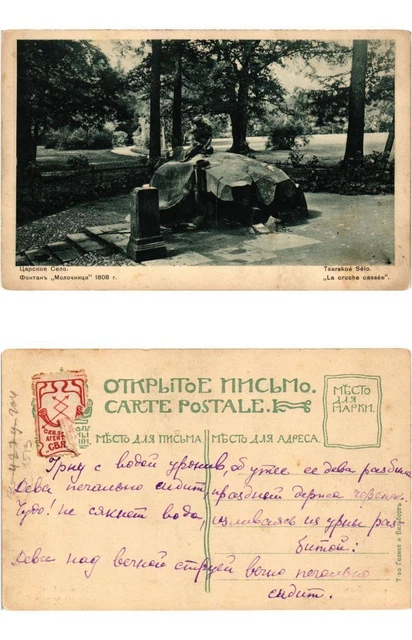 Царское Село.
Фонтанъ „Молочница“ 1808 г.
Tsarskoé Sélo.
„La cruche cassée“.
ОТКРЫТОЕ ПИСЬМО.
CARTE POSTALE.
МѢСТО
ДЛЯ
МАРКИ.
МѢСТО ДЛЯ ПИСЬМА
МѢСТО ДЛЯ АДРЕСА.
АГЕНТ
СВЯ
Урну с водой уронив, об утес ее дева разбила
Дева печально сидит, праздный держа черепок.
Чудо! не сякнет вода, изливаясь из урны раз
битой:
Дева над вечной струей вечно печально
сидит.
Т-во Голике и Вильборгъ